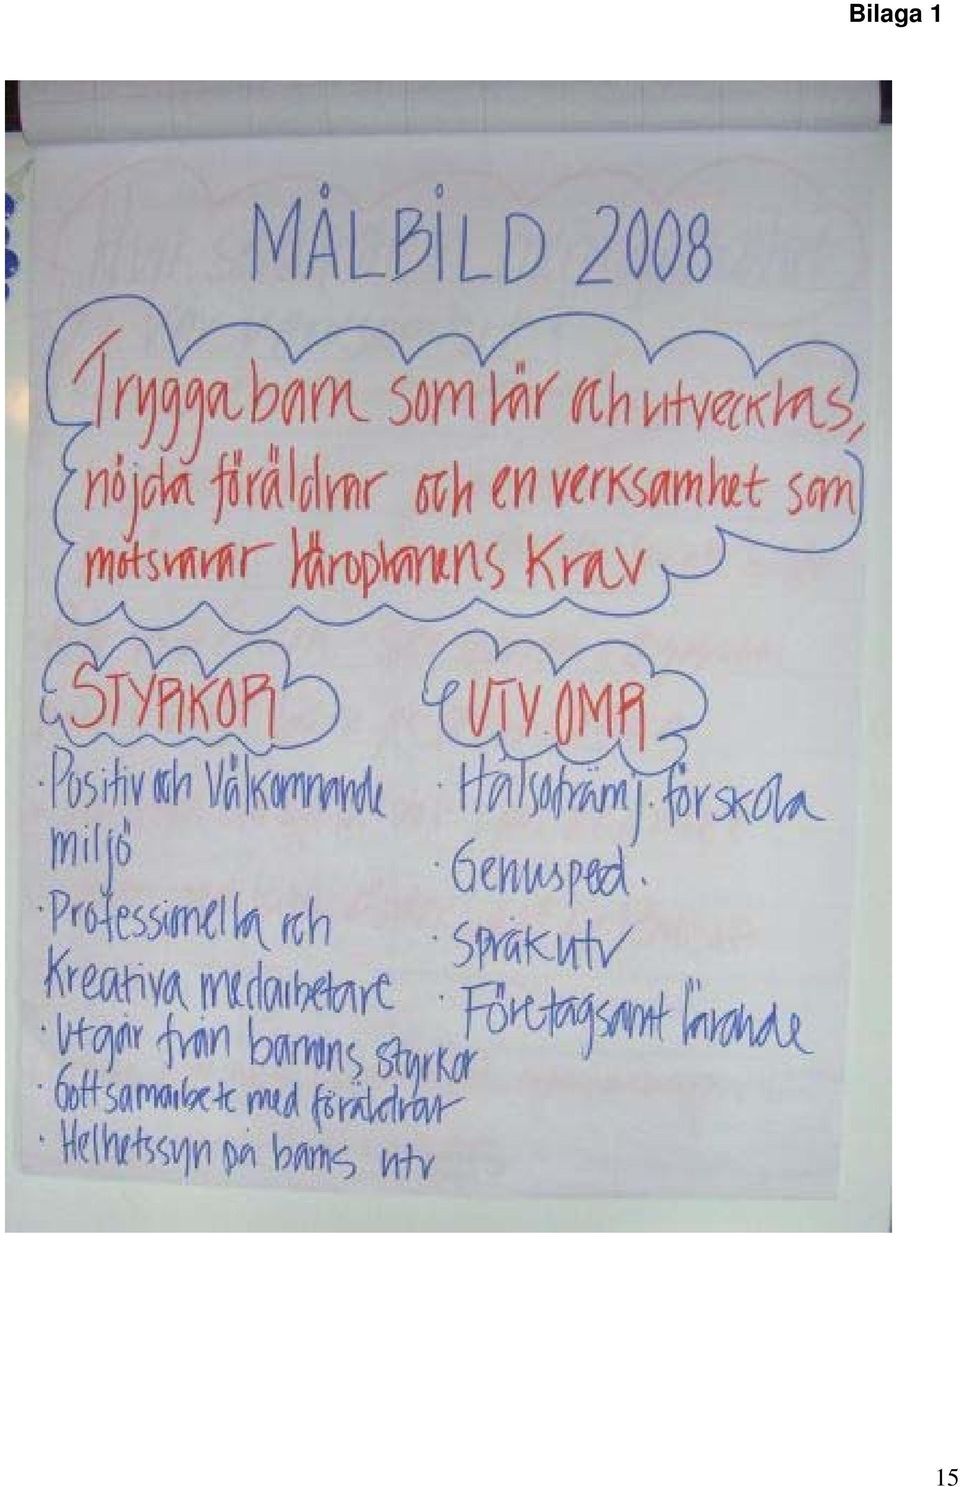 Bilaga 1
MÅLBILD 2008
Trygga barn som lär och utvecklas,
nöjda föräldrar och en verksamhet som
motsvarar läroplanens krav
STYRKOR
· Positiv och välkomnande
miljö
· Professionella och
kreativa medarbetare
· Utgår från barnens styrkor
· Gott samarbete med föräldrar
· Helhetssyn på barns utv
UTV. OMR
· Hälsofrämj. förskola
· Genusped.
· Språkutv
· Företagsamt lärande
15